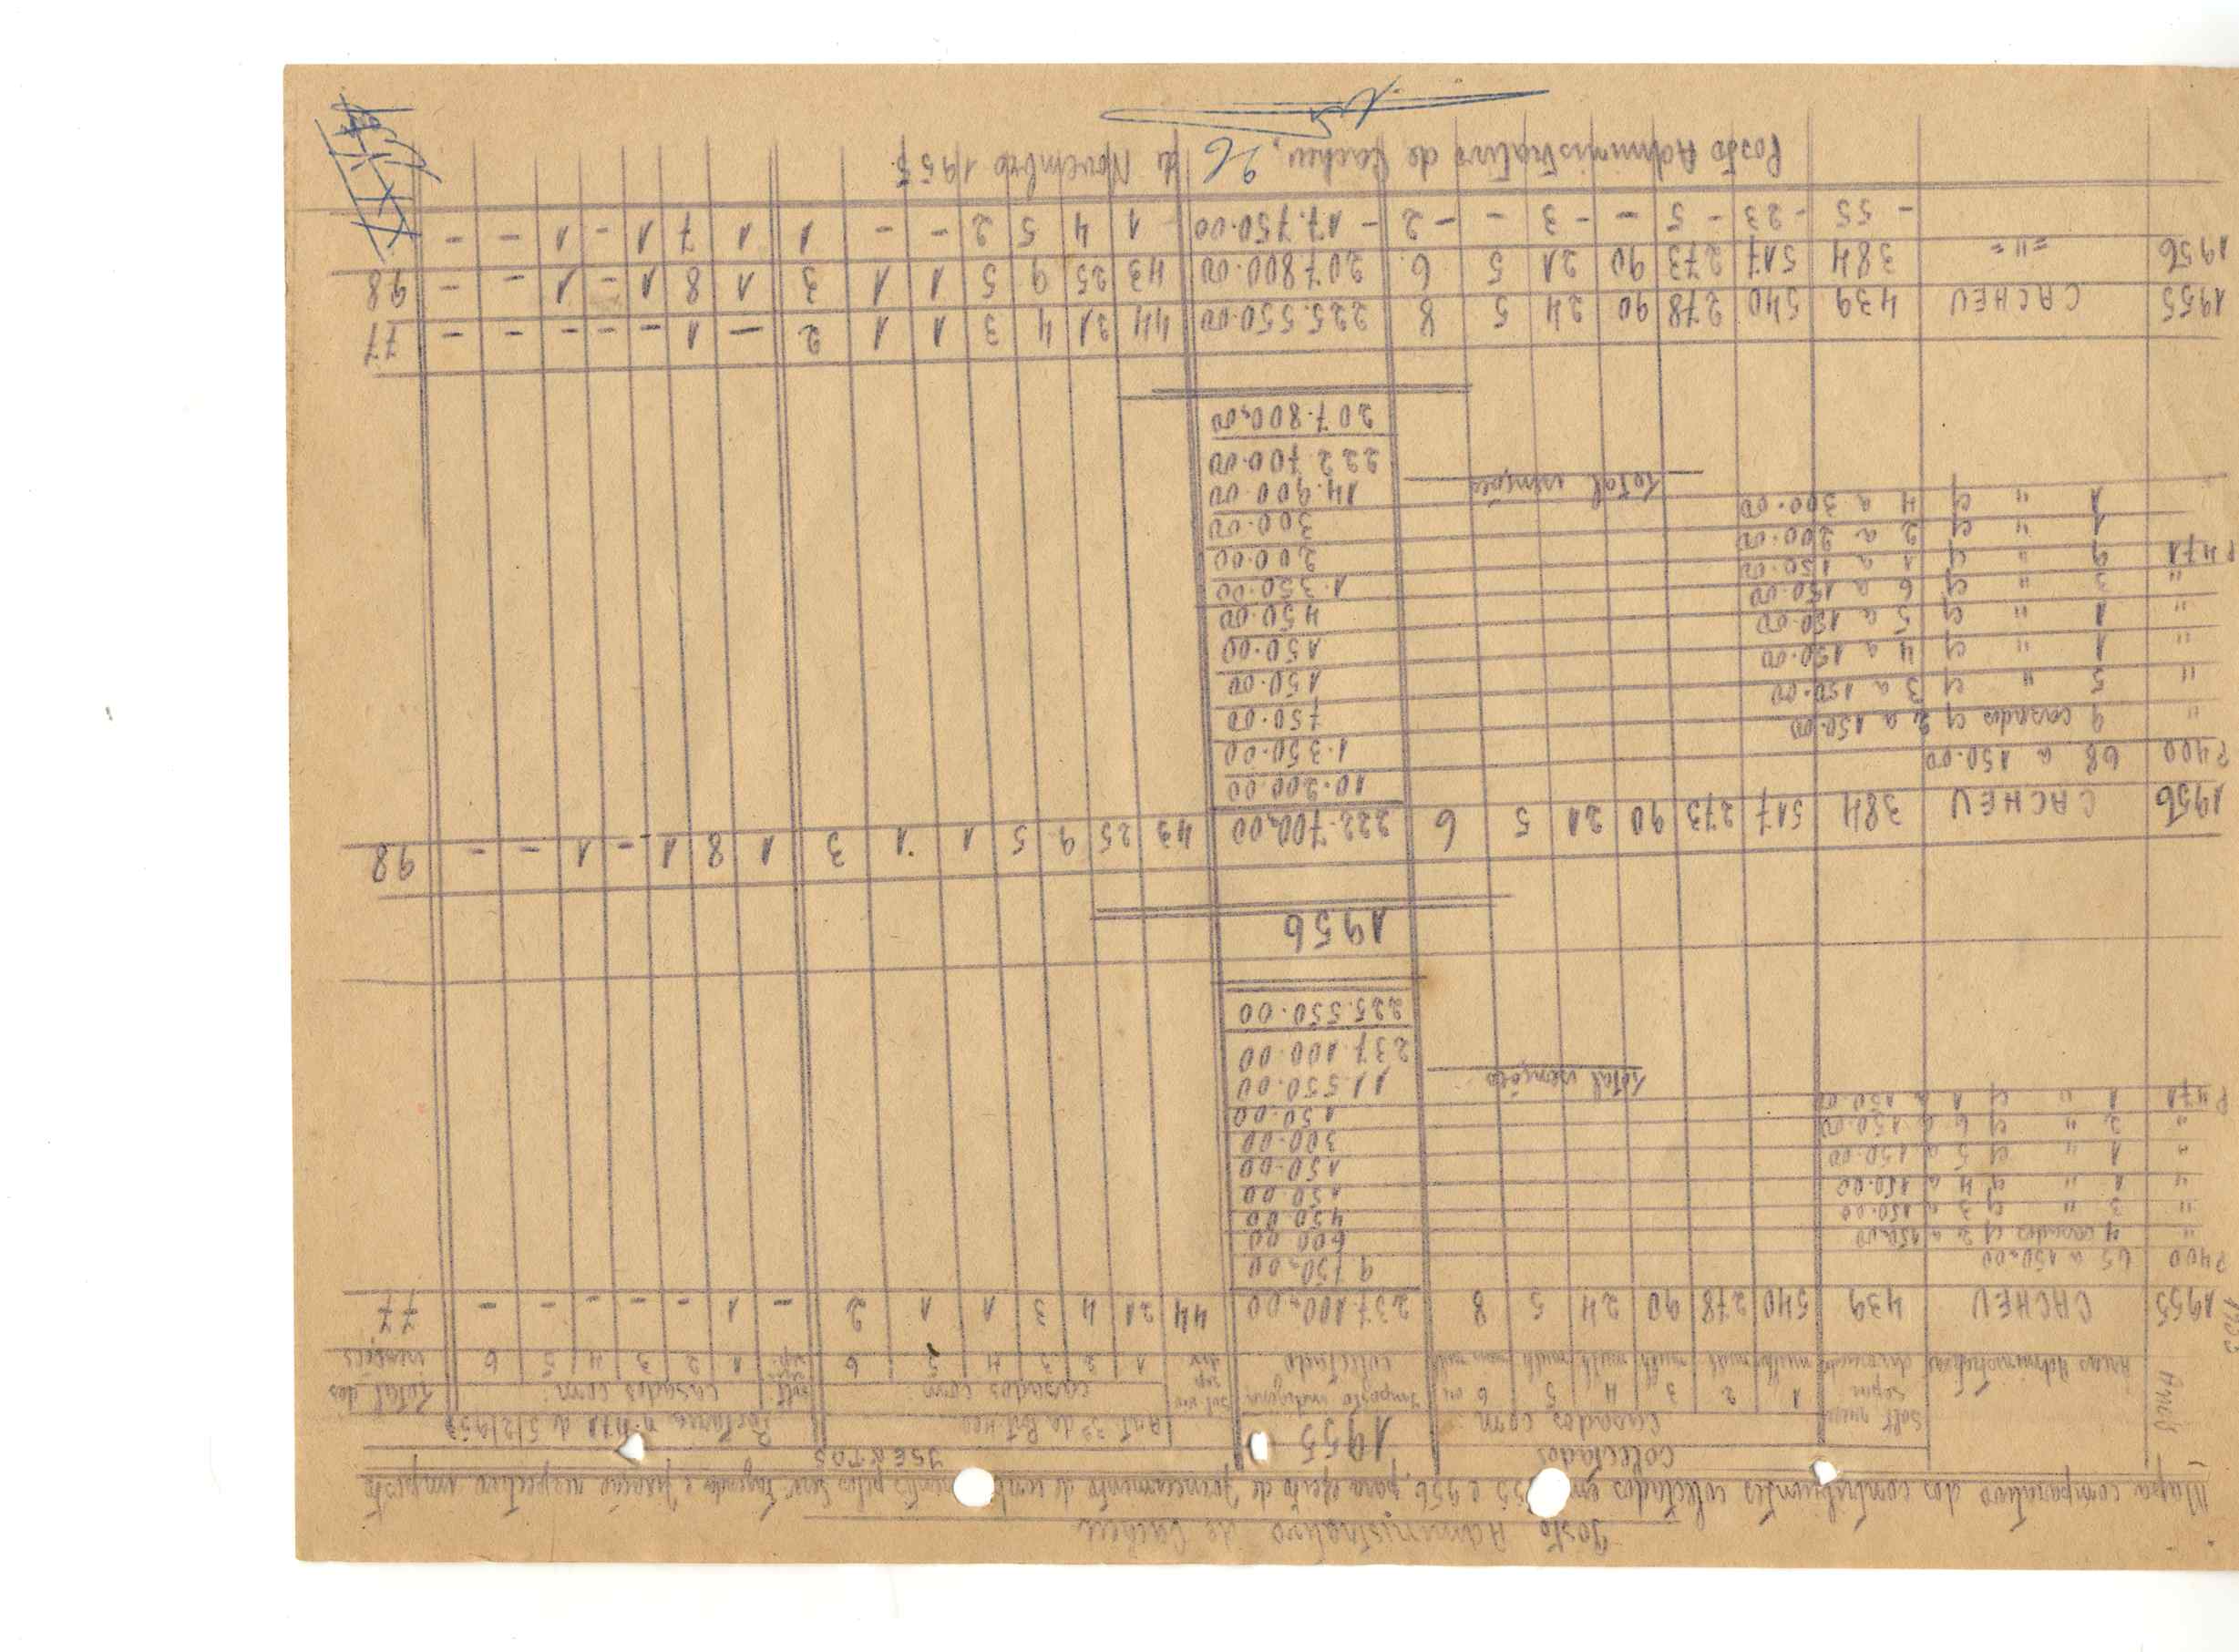 Posto Administrativo de Cacheu
Mapa comparativo dos contribuintes colectados em 1955 e 956, para efeito de fornecimento de pelos Serv. Fazenda e fixação respectivo imposto
Anos
Areas Administrativas
Colectados
1955
ISENTOS
casados com:
Art. 3º de Port. 400
Portaria nº 471 de 5/2/953
1 2 3 4 5 6 ou mais mulh
Imposto indigena colectado
casados com: 1 2 3 4 5 6
casados com: 1 2 3 4 5 6
Total das isenções
1955 CACHEU 439 540 278 90 24 5 8 237.100,00 44 21 4 3 1 1 2 - 1 - - - - - 77
1955
P400 65 a 150,00 9.750,00
" 4 casados c/ 2 a 150,00 600.00
" 3 " c/ 3 a 150.00 450.00
" 1 " c/ 4 a 150.00 150.00
" 1 " c/ 5 a 150.00 150.00
" 2 " c/ 6 a 150.00 300.00
P471 1 " c/ 1 a 150.00 150.00
Total isenções 11.550.00
237.100.00
225.550.00
1956
1956 CACHEU 384 517 273 90 21 5 6 222.700,00 43 25 9 5 1 1 3 1 8 1 - 1 - - 98
P400 68 a 150.00 10.200.00
" 9 casados c/ 2 a 150.00 1.350.00
" 5 " c/ 3 a 150.00 750.00
" 1 " c/ 4 a 150.00 150.00
" 1 " c/ 5 a 150.00 150.00
" 3 " c/ 6 a 150.00 450.00
P471 9 " c/ 1 a 150.00 1.350.00
1 " c/ 2 a 200.00 200.00
1 " c/ 4 a 300.00 300.00
Total isenções 14.900.00
222.700.00
207.800,00
1955 CACHEU 439 540 278 90 24 5 8 225.550.00 44 21 4 3 1 1 2 - 1 - - - - - 77
1956 = " = 384 517 273 90 21 5 6 207.800.00 43 25 9 5 1 1 3 1 8 1 - 1 - - 98
- 55 - 23 - 5 - - 3 - - 2 - 17.750.00 1 4 5 2 - - 1 1 7 1 - 1 - -
Posto Administrativo de Cacheu, 26 de Novembro 1955